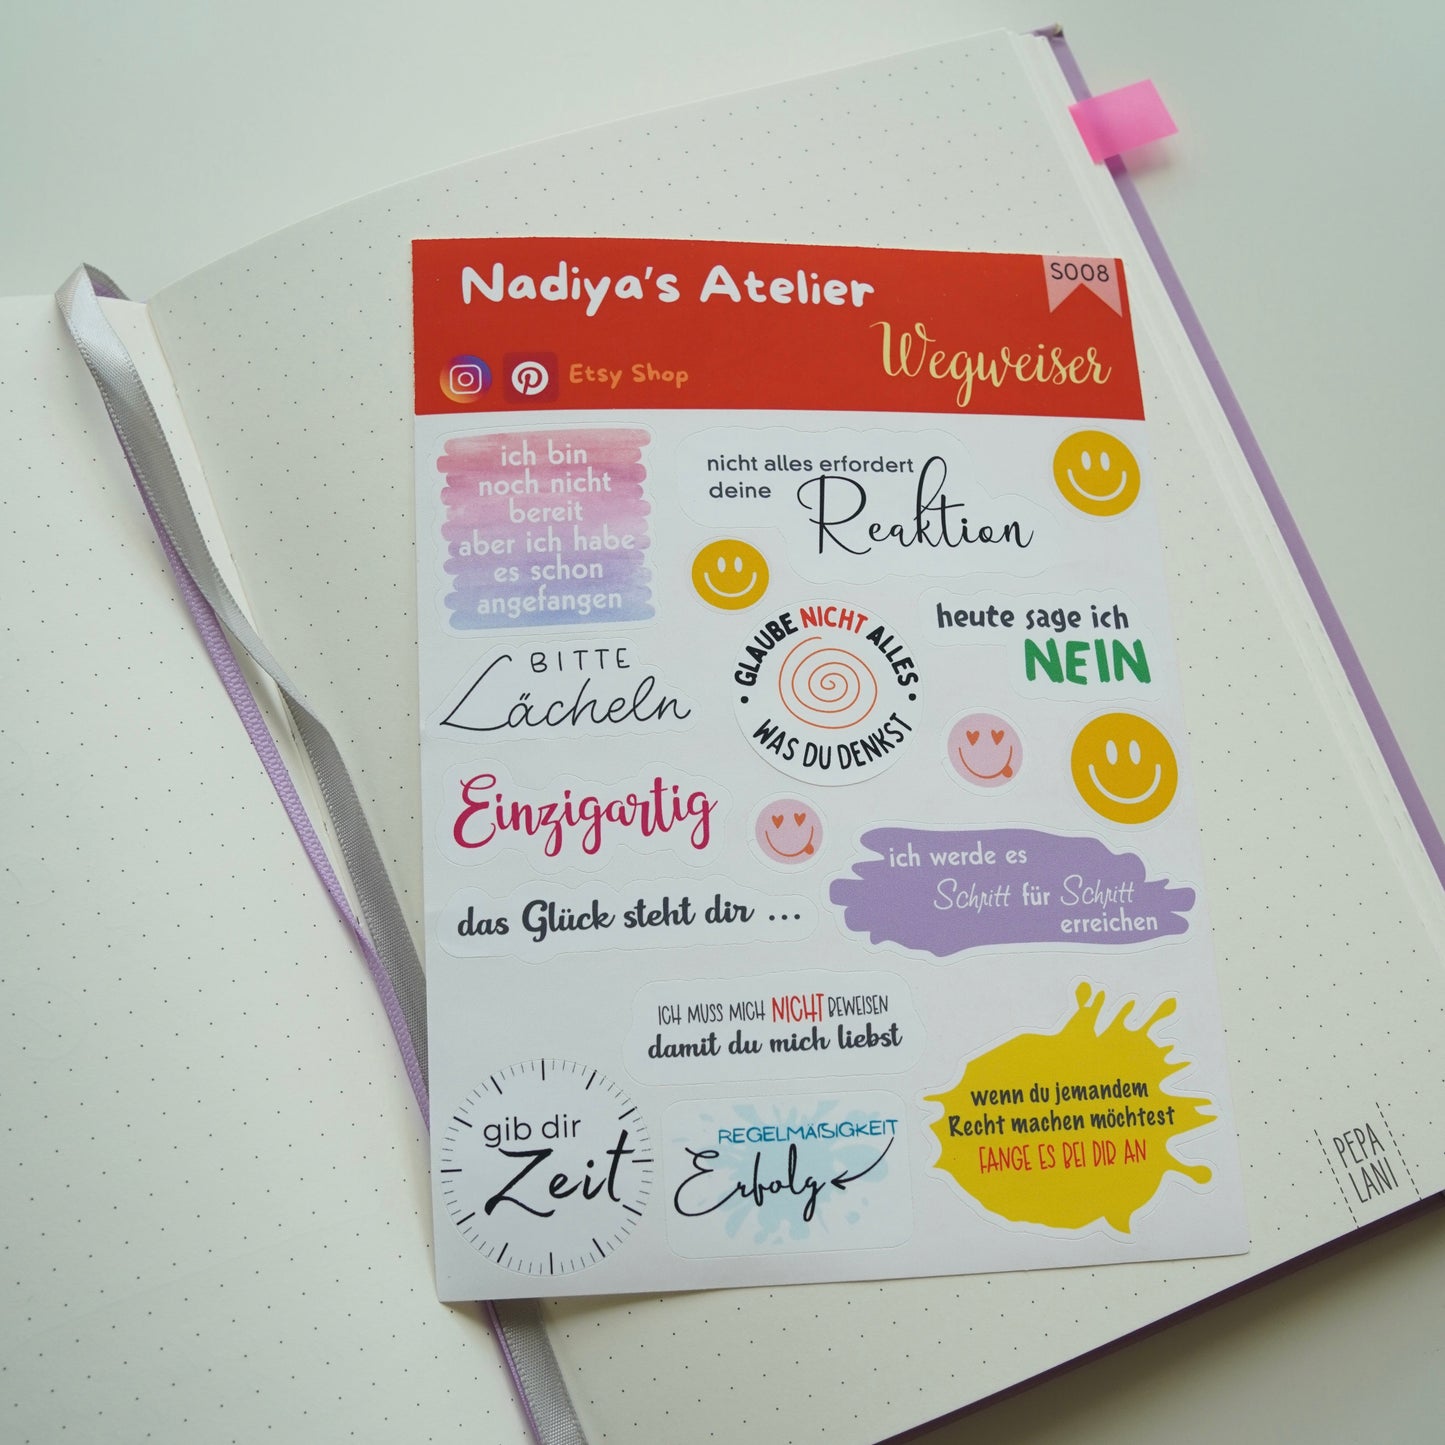 Nadiya's Atelier
S008
Wegweiser
Etsy Shop
ich bin
noch nicht
bereit
aber ich habe
es schon
angefangen
nicht alles erfordert
deine Reaktion
heute sage ich
NEIN
BITTE
Lächeln
• GLAUBE NICHT ALLES •
WAS DU DENKST
Einzigartig
ich werde es
Schritt für Schritt
erreichen
das Glück steht dir ...
ICH MUSS MICH NICHT BEWEISEN
damit du mich liebst
wenn du jemandem
Recht machen möchtest
FANGE ES BEI DIR AN
gib dir
Zeit
REGELMÄßIGKEIT
Erfolg
PEPA
LANI